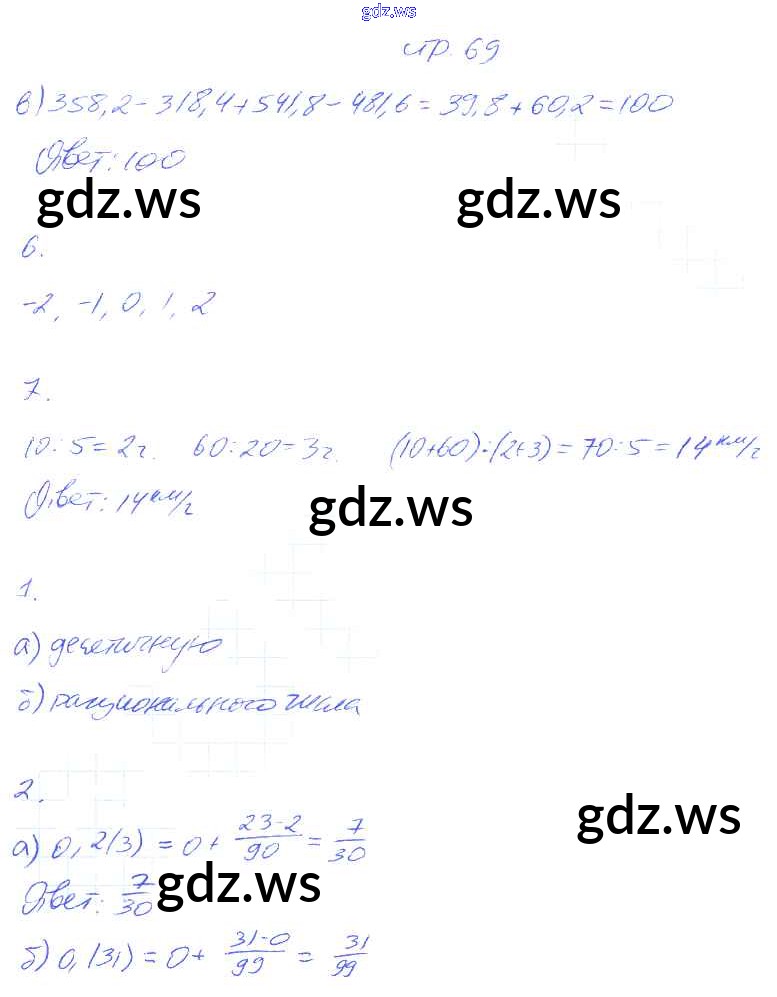 gdz.ws
стр. 69
в) 358,2 - 318,4 + 541,8 - 481,6 = 39,8 + 60,2 = 100
Ответ: 100
gdz.ws gdz.ws
6.
-2, -1, 0, 1, 2
7.
10 : 5 = 2г. 60 : 20 = 3г. (10+60) : (2+3) = 70 : 5 = 14 км/г
Ответ: 14 км/г
gdz.ws
1.
а) десятичную
б) рационального числа
2.
gdz.ws
а) 0,2(3) = 0 + 23-2/90 = 7/30
Ответ: 7/30
gdz.ws
б) 0,(31) = 0 + 31-0/99 = 31/99